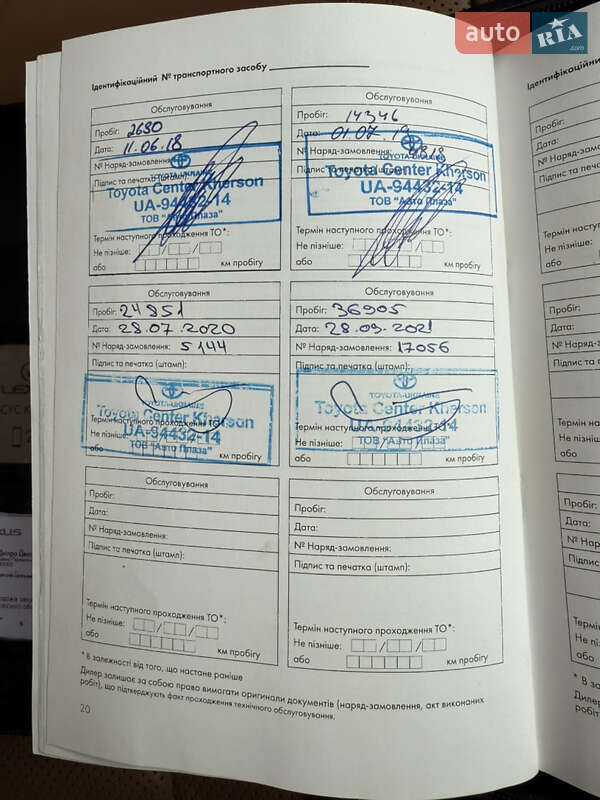 auto RIA.com
Ідентифікаційний № транспортного засобу
Обслуговування
Пробіг: 2690
Дата: 11.06.18
№ Наряд-замовлення:
Підпис та печатка (штамп):
TOYOTA-UKRAINE
Toyota Center Kherson
UA-94432-14
ТОВ "Авто Плаза"
Термін наступного проходження ТО*:
Не пізніше:
або км пробігу
Обслуговування
Пробіг: 14346
Дата: 01.07.19
№ Наряд-замовлення:
Підпис та печатка (штамп):
TOYOTA-UKRAINE
Toyota Center Kherson
UA-94432-14
ТОВ "Авто Плаза"
Термін наступного проходження ТО*:
Не пізніше:
або км пробігу
Обслуговування
Пробіг: 24951
Дата: 28.07.2020
№ Наряд-замовлення: 5144
Підпис та печатка (штамп):
TOYOTA-UKRAINE
Toyota Center Kherson
Термін наступного проходження ТО*:
UA-94432-14
Не пізніше:
ТОВ "Авто Плаза"
або км пробігу
Обслуговування
Пробіг: 36905
Дата: 28.09.2021
№ Наряд-замовлення: 17056
Підпис та печатка (штамп):
TOYOTA-UKRAINE
Toyota Center Kherson
Термін наступного проходження ТО*:
UA-94432-14
Не пізніше:
ТОВ "Авто Плаза"
або км пробігу
Обслуговування
Пробіг:
Дата:
№ Наряд-замовлення:
Підпис та печатка (штамп):
Термін наступного проходження ТО*:
Не пізніше:
або км пробігу
Обслуговування
Пробіг:
Дата:
№ Наряд-замовлення:
Підпис та печатка (штамп):
Термін наступного проходження ТО*:
Не пізніше:
або км пробігу
* В залежності від того, що настане раніше
Дилер залишає за собою право вимагати оригинали документів (наряд-замовлення, акт виконаних
робіт), що підтверджують факт проходження технічного обслуговування.
20
Ідентифікаційни
Пробіг:
Дата:
№ Наряд-замовл
Підпис та печат
Термін наступно
Не пізніше:
або
Пробіг:
Дата:
№ Наряд-замов
Підпис та печат
Термін наступн
Не пізніше:
або
Пробіг:
Дата:
№ Наряд-замо
Підпис та печа
Термін наступ
Не пізніше:
або
* В за
Дилер
робіт